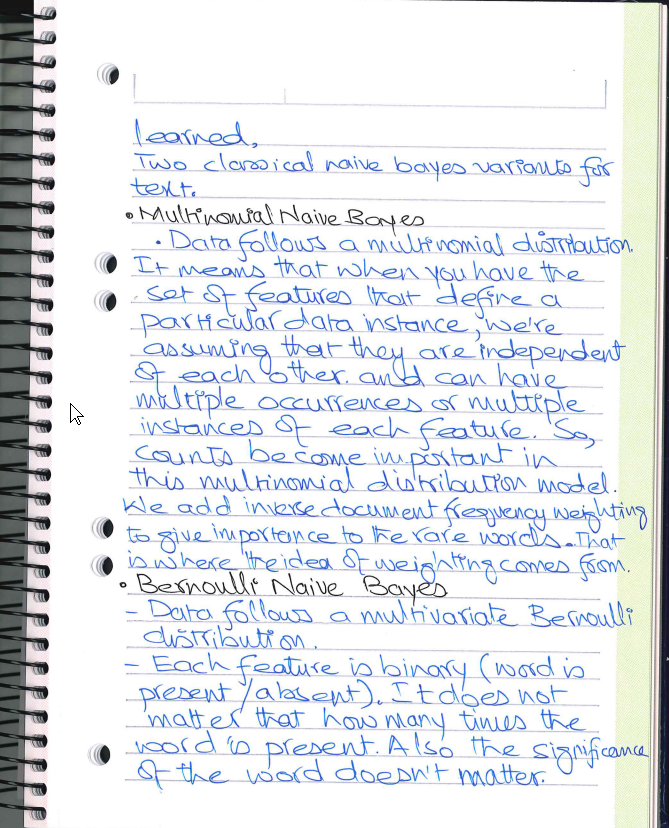 learned,
Two classical naive bayes variants for
text.
• Multinomial Naive Bayes
• Data follows a multinomial distribution.
It means that when you have the
set of features that define a
particular data instance, we're
assuming that they are independent
of each other. and can have
multiple occurrences or multiple
instances of each feature. So,
counts become important in
this multinomial distribution model.
We add inverse document frequency weighting
to give importance to the rare words. That
is where the idea of weighting comes from.
• Bernoulli Naive Bayes
- Data follows a multivariate Bernoulli
distribution.
- Each feature is binary (word is
present / absent). It does not
matter that how many times the
word is present. Also the significance
of the word doesn't matter.